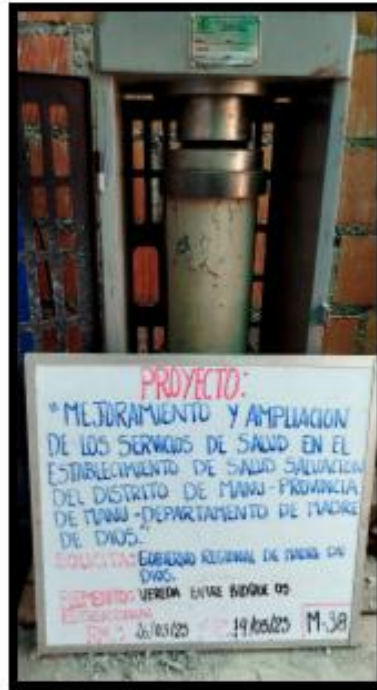 PROYECTO:
"MEJORAMIENTO Y AMPLIACION
DE LOS SERVICIOS DE SALUD EN EL
ESTABLECIMIENTO DE SALUD SALVACION
DEL DISTRITO DE MANU-PROVINCIA
DE MANU-DEPARTAMENTO DE MADRE
DE DIOS."
SOLICITA: GOBIERNO REGIONAL DE MADRE DE
DIOS.
VEREDA ENTRE BLOQUE 05
19/05/25 M-38